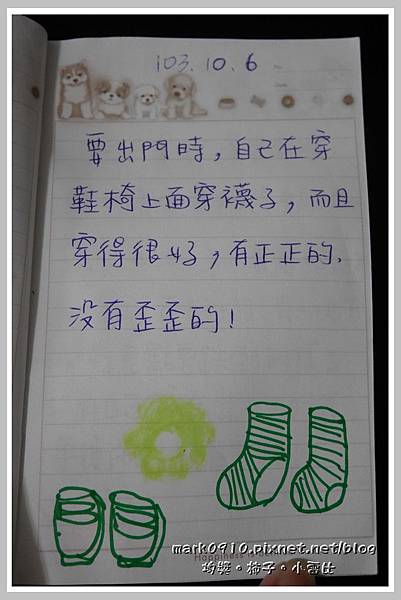 103.10.6
要出門時,自己在穿
鞋椅上面穿襪子,而且
穿得很好,有正正的.
沒有歪歪的!
mark0910.pixnet.net/blog
Happiness